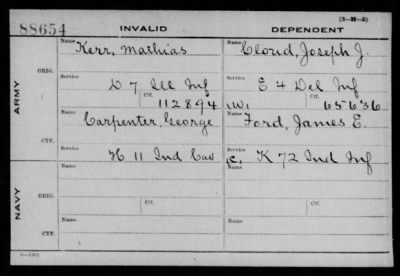 (3-H-3)
88654 INVALID DEPENDENT
Name Kerr, Mathias Name Cloud, Joseph J.
ARMY
ORIG.
Service D 7 Ill Inf Service E 4 Del Inf
Ctf. 112894 W. Ctf. 65636
Name Carpenter, George Name Ford, James E.
CTF.
Service H 11 Ind Cav Service C. K 72 Ind Inf
NAVY
Name Name
ORIG.
Ctf. Ctf.
Name Name
CTF.